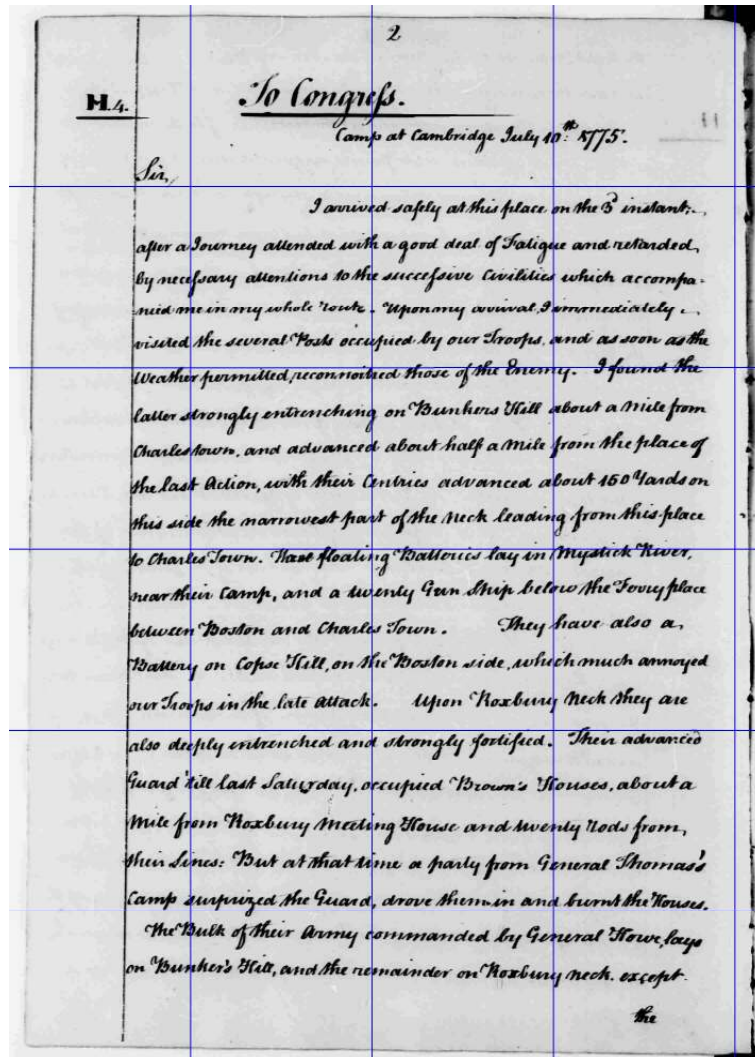 2
H.4.
To Congress.
Camp at Cambridge July 10th. 1775.
Sir,
I arrived safely at this place on the 3d instant;
after a Journey attended with a good deal of Fatigue and retarded,
by necessary attentions to the successive Civilities which accompa-
nied me in my whole route. Upon my arrival, I immediately
visited the several Posts occupied by our Troops, and as soon as the
Weather permitted, reconnoitred those of the Enemy. I found the
latter strongly entrenching on Bunkers Hill about a Mile from
Charlestown, and advanced about half a Mile from the place of
the last Action, with their Centries advanced about 150 Yards on
this side the narrowest part of the Neck leading from this place
to Charles Town. floating Batteries lay in Mystick River,
near their Camp, and a twenty Gun Ship below the Ferry place
between Boston and Charles Town. They have also a
Battery on Copse Hill, on the Boston side, which much annoyed
our Troops in the late attack. Upon Roxbury Neck they are
also deeply entrenched and strongly fortified. Their advanced
Guard 'till last Saturday, occupied Brown's Houses, about a
Mile from Roxbury Meeting House and twenty rods from,
their Lines: But at that time a party from General Thomas's
Camp surprized the Guard, drove them in and burnt the Houses.
The Bulk of their Army commanded by General Howe, lays
on Bunker's Hill, and the remainder on Roxbury Neck, except
the